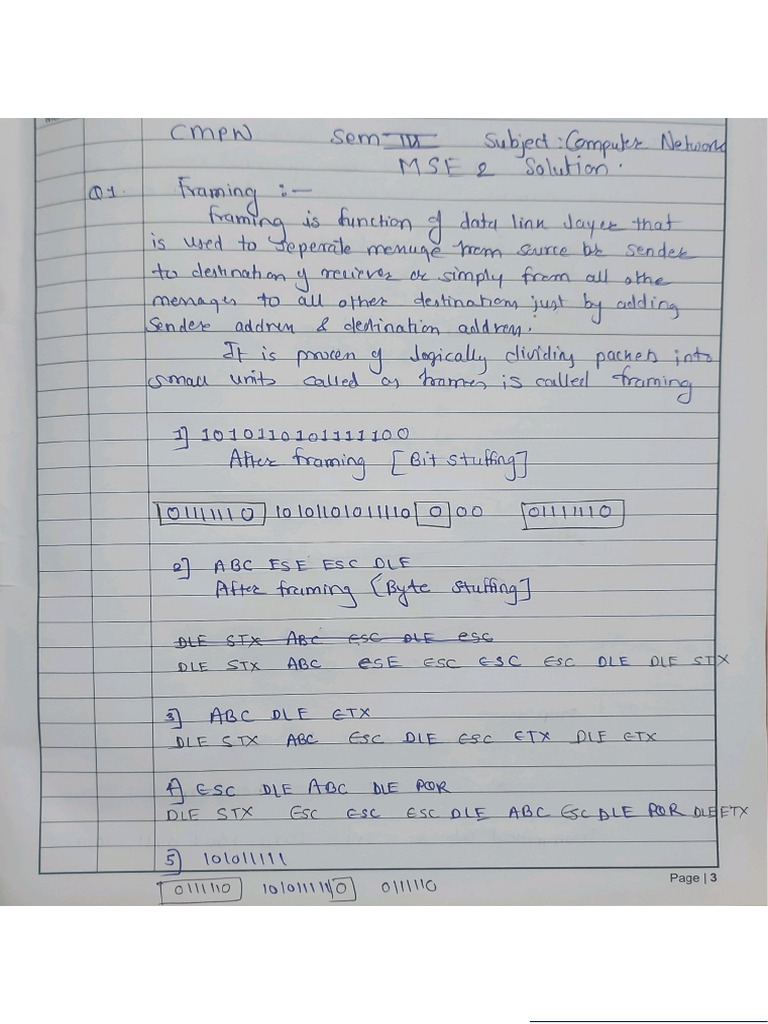 CMPN Sem IV Subject: Computer Network
MSE 2 Solution.
Q1. Framing :-
Framing is function of data link layer that
is used to seperate message from source or sender
to destination of reciever or simply from all othe
messages to all other destinations just by adding
sender address & destination address.
It is process of logically dividing packets into
small units called as frames is called framing
1] 1010110101111100
After framing [Bit stuffing]
01111110 10101101011110 0 00 01111110
2] ABC ESE ESC DLE
After framing [Byte stuffing]
DLE STX ABC ESC DLE ESC
DLE STX ABC ESE ESC ESC ESC DLE DLE STX
3] ABC DLE ETX
DLE STX ABC ESC DLE ESC ETX DLE ETX
4] ESC DLE ABC DLE PQR
DLE STX ESC ESC ESC DLE ABC ESC DLE PQR DLE ETX
5] 101011111
0111110 101011111 0 0111110
Page | 3